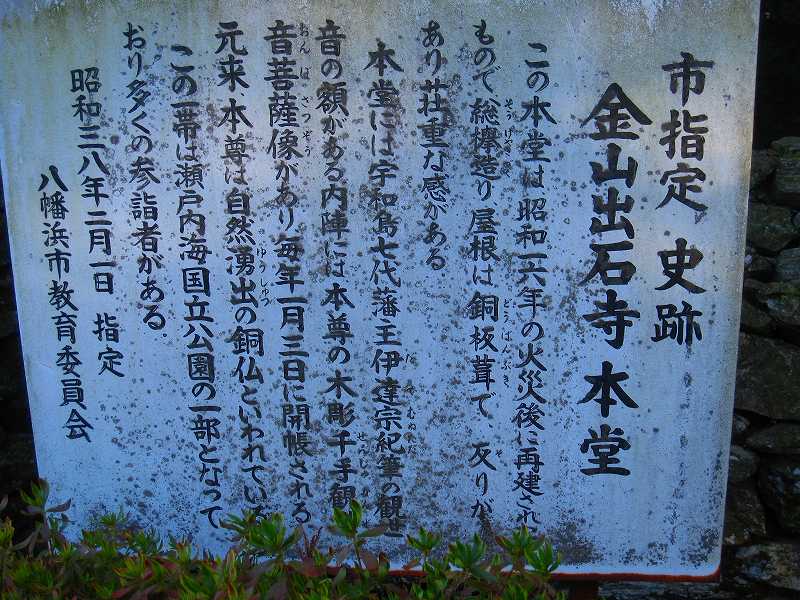 市指定 史跡
金山出石寺 本堂
この本堂は昭和一六年の火災後に再建され
もので総欅造り屋根は銅板葺で 反りが
あり荘重な感がある
本堂には宇和島七代藩主伊達宗紀筆の観世
音の額がある内陣には本尊の木彫千手観
音菩薩像があり毎年一月三日に開帳される
元来本尊は自然湧出の銅仏といわれている
この一帯は瀬戸内海国立公園の一部となって
おり多くの参詣者がある
昭和三八年二月一日 指定
八幡浜市教育委員会